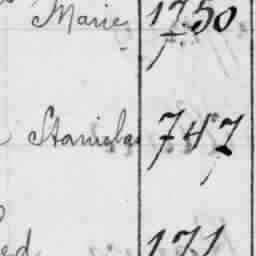 Marie 1750
Stanislas 747
ed 171